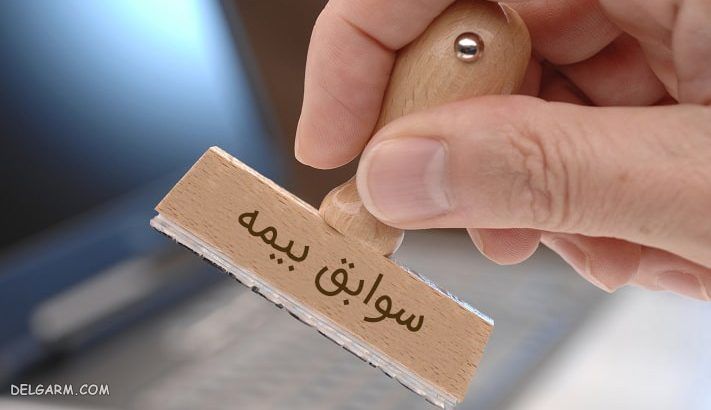 سوابق بیمه
DELGARM.COM